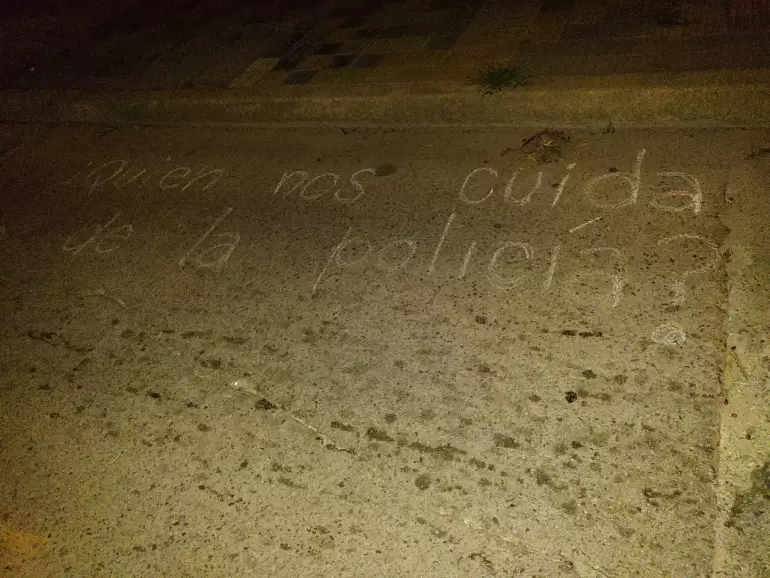 ¿Quien nos cuida
de la policía?